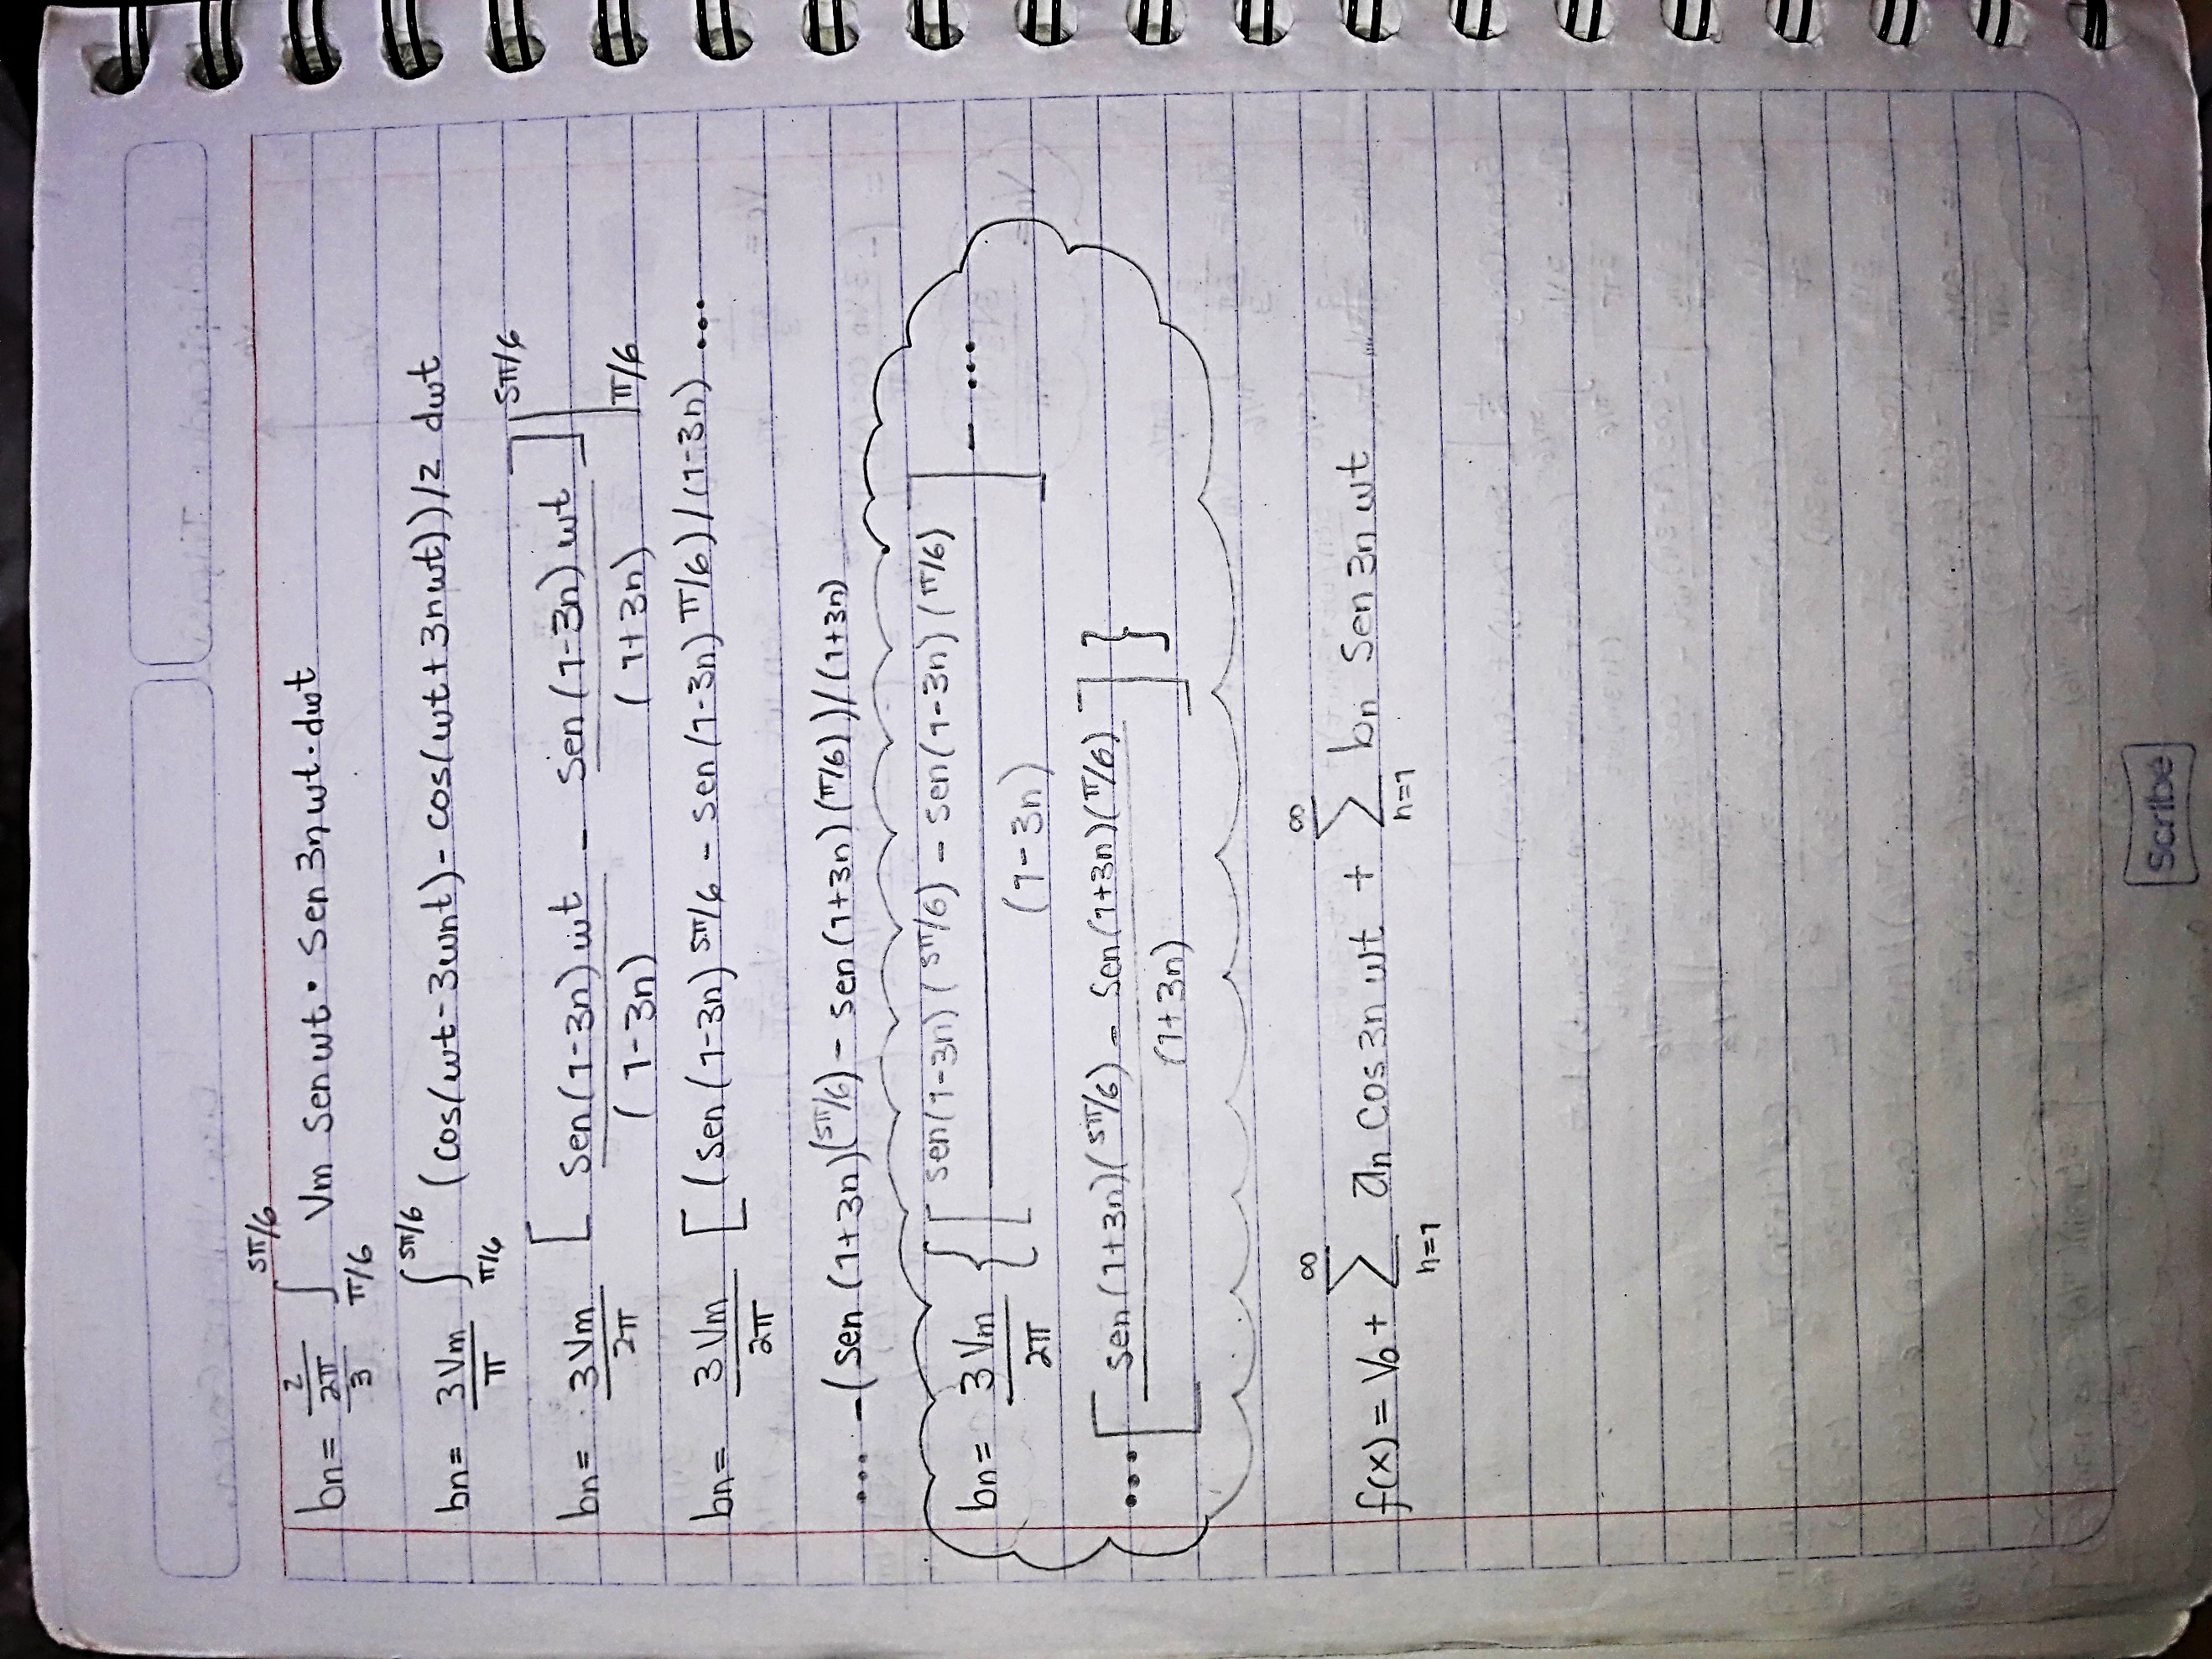 bn = 2/(2π/3) ∫_{π/6}^{5π/6} Vm Sen wt · Sen 3n wt · dwt
bn = 3Vm/π ∫_{π/6}^{5π/6} (cos(wt - 3wnt) - cos(wt + 3nwt))/2 dwt
bn = 3Vm/2π [ Sen(1-3n)wt/(1-3n) - Sen(1-3n)wt/(1+3n) ] |_{π/6}^{5π/6}
bn = 3Vm/2π [ (Sen(1-3n) 5π/6 - Sen(1-3n) π/6)/(1-3n) ....
.... -(Sen(1+3n)(5π/6) - Sen(1+3n)(π/6))/(1+3n)
bn = 3Vm/2π { [ Sen(1-3n)(5π/6) - Sen(1-3n)(π/6) / (1-3n) ] - ....
.... [ Sen(1+3n)(5π/6) - Sen(1+3n)(π/6) / (1+3n) ] }
f(x) = Vo + ∑_{n=1}^{∞} an Cos 3n wt + ∑_{n=1}^{∞} bn Sen 3n wt
Scribe